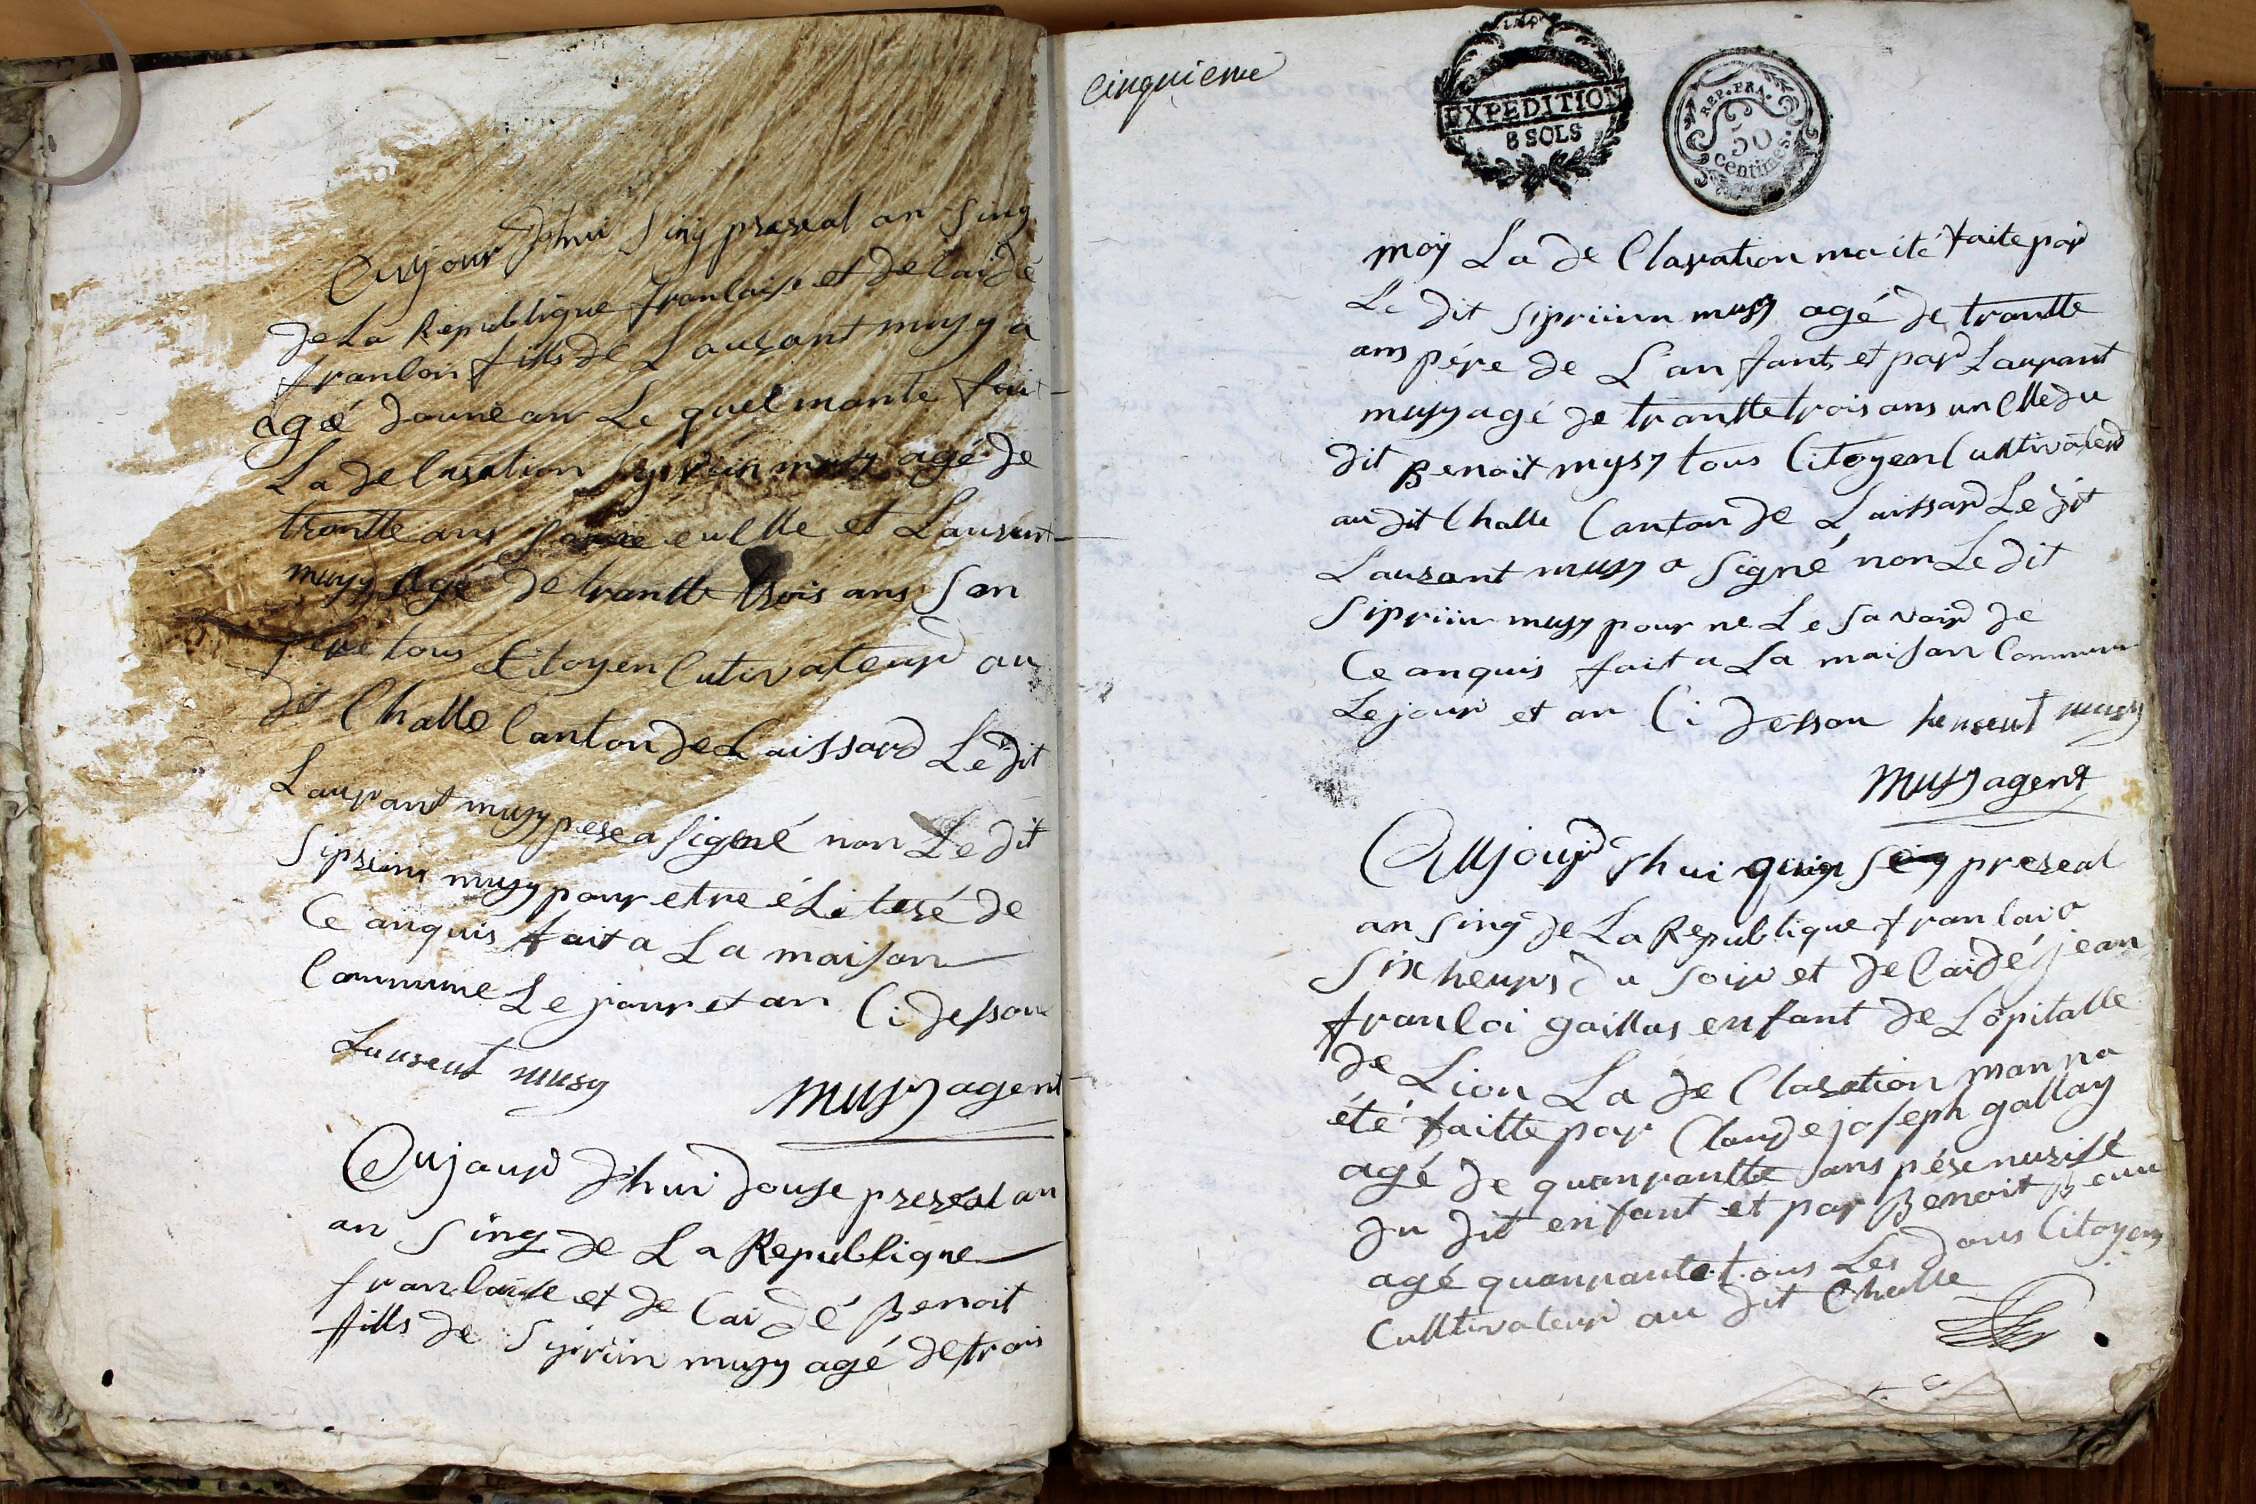 Aujour dhui Sinq prereal an Sinq
de La Republique franlaise et de laidé
franloin fills de Laurant musy a
agé doune an Le quel mante fait
La de Clasation Syprien musy agé de
trantte ans eullle et Laurent
musy Agé de trantte trois ans Son
pere tous Citoyen Cutivateurd au
dit Challe Canton de Laissard Le dit
Laurant musy pere a Signé non Le dit
Sipriin musy pour etre éLiteré de
Ce anquis fait a La maison
Commune Le jour et an Ci dessou
Laurent musy
musy agent
Aujourd dhui douse prereal an
an Sinq de La Republique
franlaise et de Cai dé Benoit
fills de Sipriin musy agé de trois
Cinquieme
EXPEDITION
8 SOLS
REP. FRA.
50
Centimes.
moÿ La de Claration ma été faite pard
Le dit Sipriinn musy agé de trantte
ans pére de L'an fant et pard Laurant
musy agé de trantte trois ans un Clle du
dit Benoit mysy tous Citoyen Cultivateurd
au dit Challe Canton de Laissard Le dit
Laurant musy a Signé non Le dit
Sipriin musy pour ne Le Savoird de
Ce anquis fait a La maison Commune
Le jourd et an Ci dessou Laurent musy
musy agent
Aujourd dhui prereal
an Sinq de La Republique franlai a
Six heurs du Soird et de Caidé jean
franloi gaillas enfant de Lopitalle
de Lion La de Claration man na
été faitte par Claude joseph gallay
agé de quanrantte ans pére nurisié
du dit enfant et par Benoit
agé quanrante tous Les dous Citoyens
Culltivateurd au dit Challe